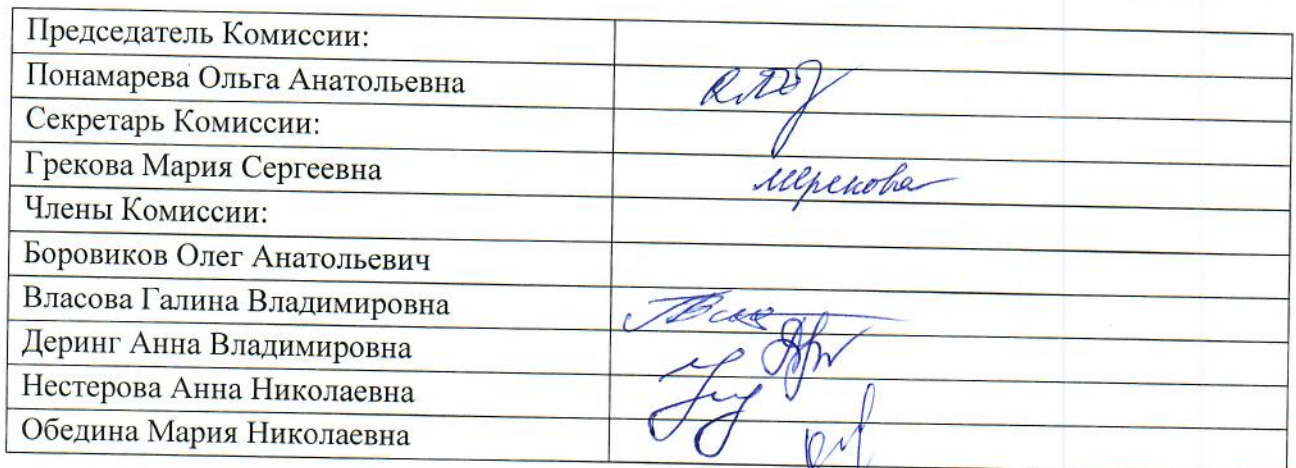 Председатель Комиссии:
Понамарева Ольга Анатольевна
Секретарь Комиссии:
Грекова Мария Сергеевна
Члены Комиссии:
Боровиков Олег Анатольевич
Власова Галина Владимировна
Деринг Анна Владимировна
Нестерова Анна Николаевна
Обедина Мария Николаевна